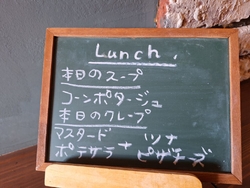 Lunch.
本日のスープ
コーンポタージュ
本日のクレープ
マスタード ツナ
ポテサラ + ピザチーズ